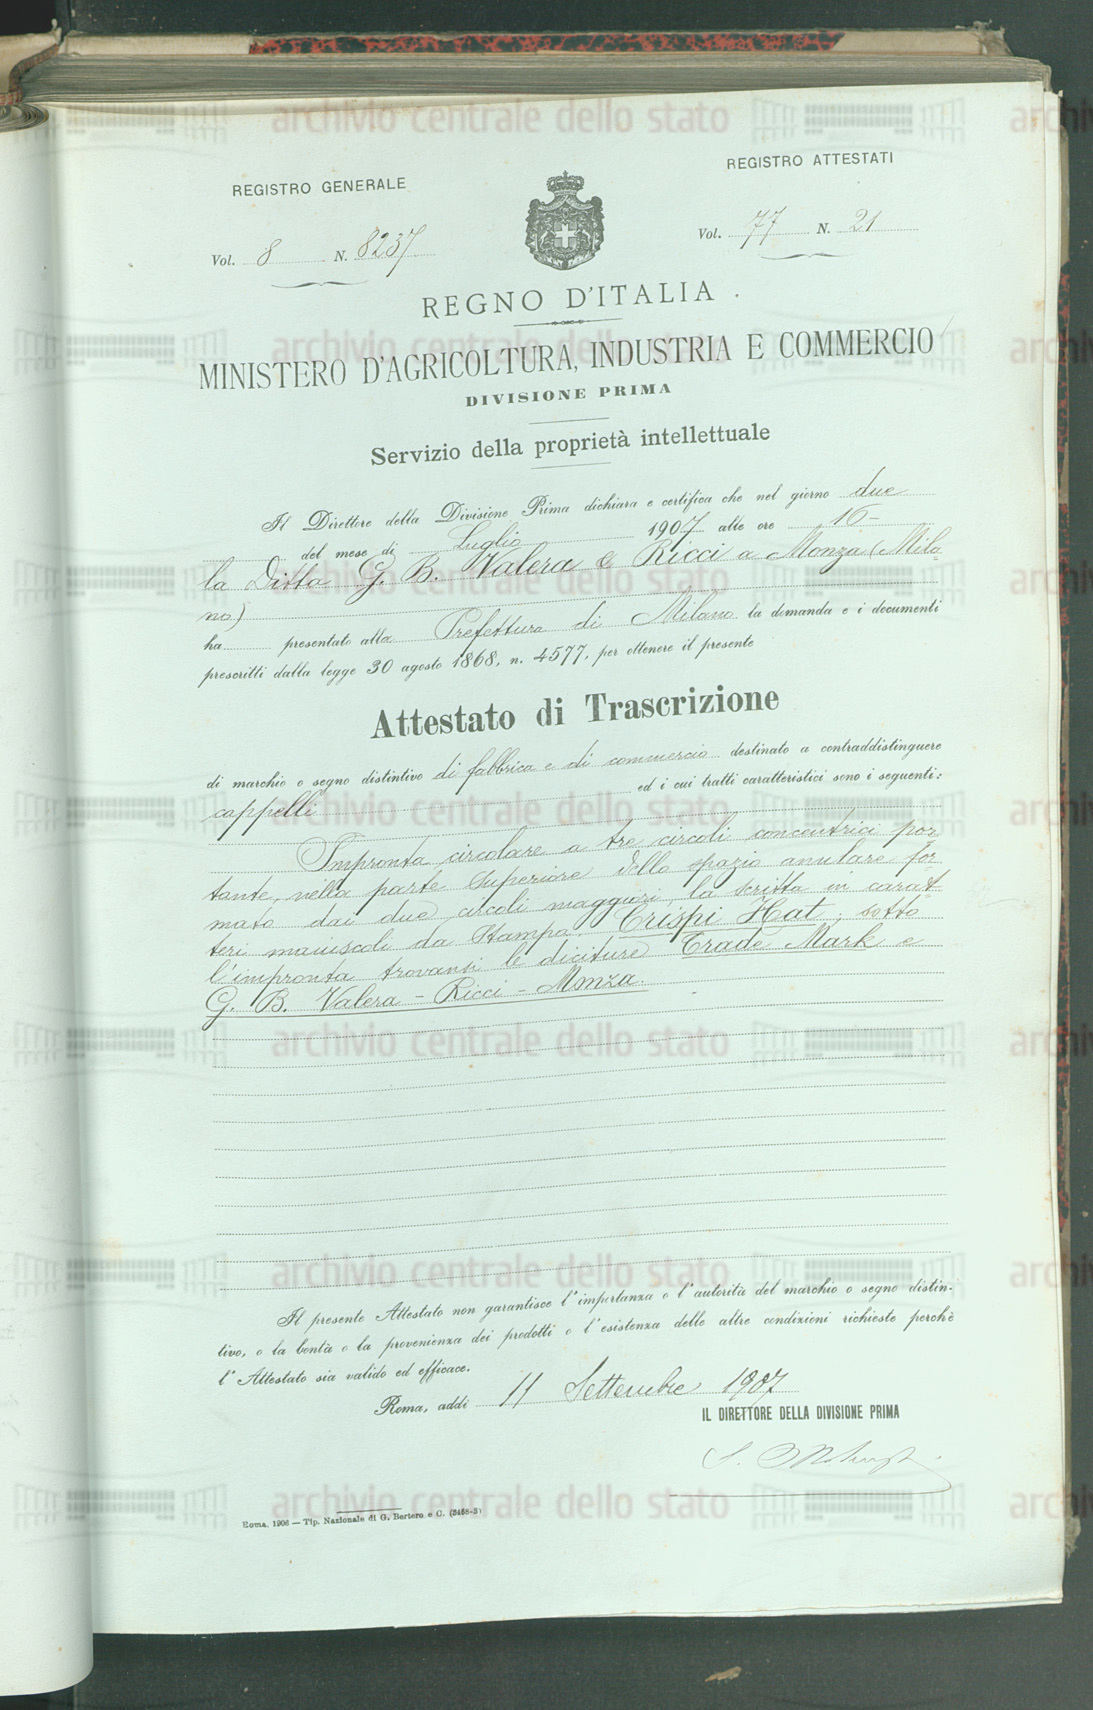 REGISTRO GENERALE
REGISTRO ATTESTATI
Vol. 8 N. 8237
Vol. 77 N. 21
REGNO D'ITALIA
MINISTERO D'AGRICOLTURA, INDUSTRIA E COMMERCIO
DIVISIONE PRIMA
Servizio della proprietà intellettuale
Il Direttore della Divisione Prima dichiara e certifica che nel giorno due
del mese di Luglio 1907 alle ore 16-
la Ditta G. B. Valera & Ricci a Monza (Mila-
no)
ha presentato alla Prefettura di Milano la domanda e i documenti
prescritti dalla legge 30 agosto 1868, n. 4577, per ottenere il presente
Attestato di Trascrizione
di marchio o segno distintivo di fabbrica e di commercio destinato a contraddistinguere
cappelli ed i cui tratti caratteristici sono i seguenti:
Impronta circolare a tre circoli concentrici por-
tante, nella parte superiore dello spazio anulare for-
mato dai due circoli maggiori, la scritta in carat-
teri maiuscoli da stampa: Crispi Hat; sotto
l'impronta trovansi le diciture Trade Mark e
G. B. Valera - Ricci - Monza.
Il presente Attestato non garantisce l'importanza o l'autorità del marchio o segno distin-
tivo, o la bontà o la provenienza dei prodotti o l'esistenza delle altre condizioni richieste perchè
l'Attestato sia valido ed efficace.
Roma, addì 11 Settembre 1907
IL DIRETTORE DELLA DIVISIONE PRIMA
Roma, 1906 — Tip. Nazionale di G. Bertero e C. (3468-3)
archivio centrale dello stato